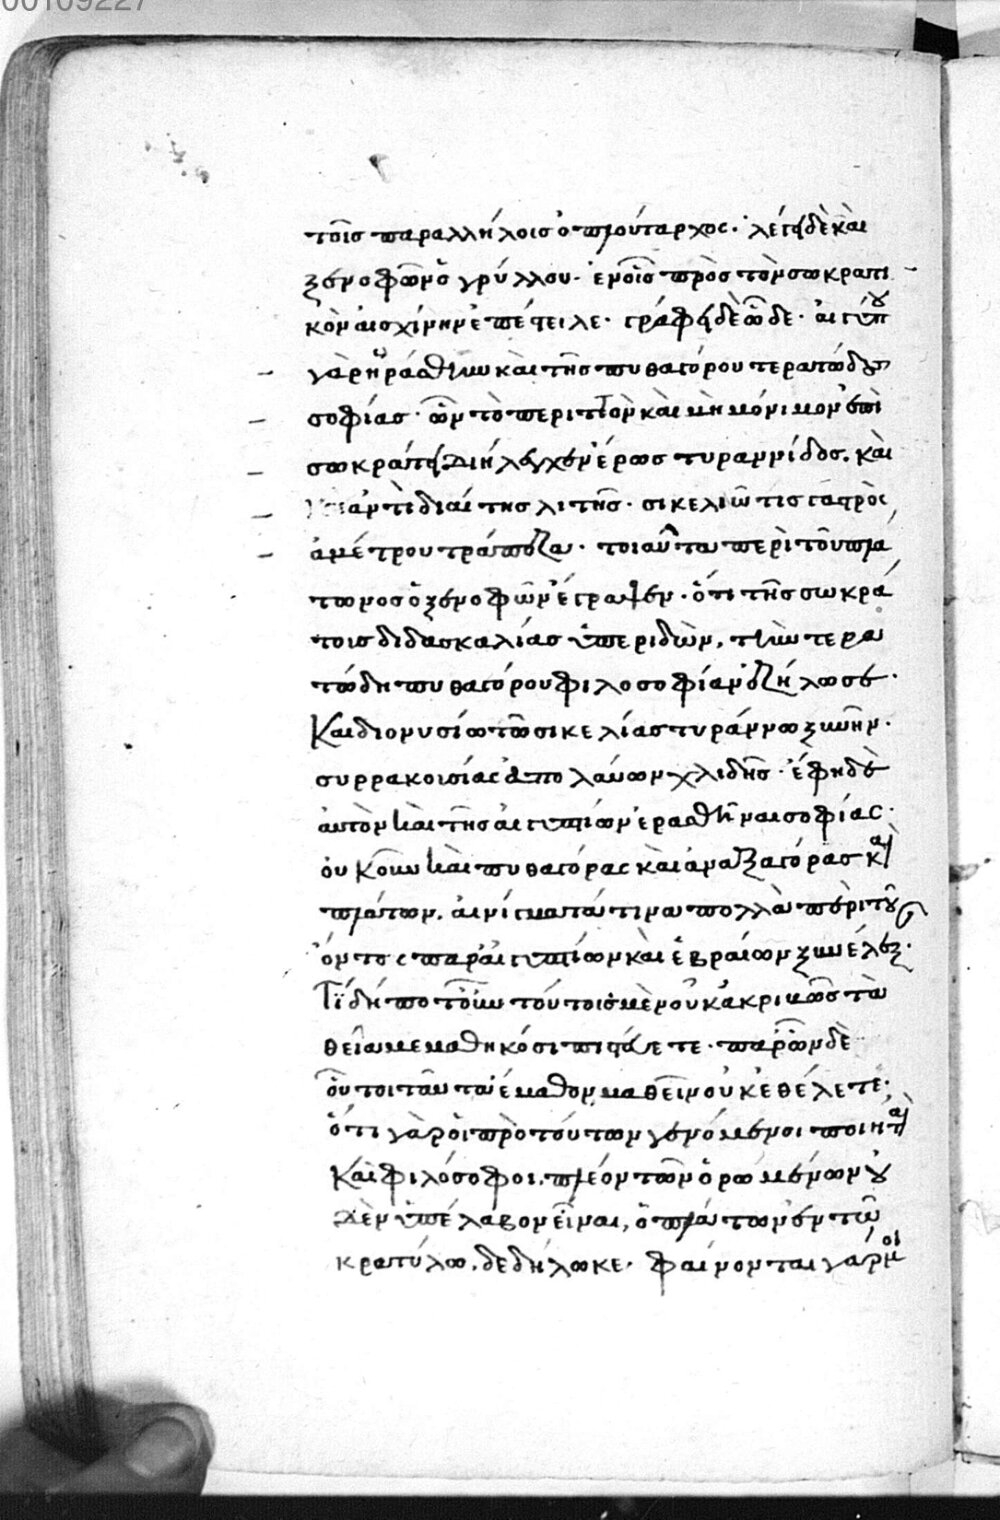 00109227
τοῖς παραλλήλοις ὁ πλούταρχος. λέγει δὲ καὶ
ξενοφῶν ὁ γρύλλου. ἐν οἷς πρὸς τὸν σωκρατι
κὸν αἰσχίνην ἐπέστειλε. γράφει δὲ ὧδε. αἰγύπτου
γὰρ ἠράσθην καὶ τῆς πυθαγόρου τερατώδους
σοφίας. ὧν τὸ περιττὸν καὶ μὴ μόνιμον ἐπὶ
σωκράτει διήλεγχεν ἔρως τυραννίδος. καὶ
ἀντὶ διαίτης λιτῆς. σικελιῶτις γαστρὸς
ἀμέτρου τράπεζα. τοιαῦτα περὶ τοῦ πλά
τωνος ὁ ξενοφῶν ἔγραψεν. ὅτι τῆς σωκρά
τους διδασκαλίας ὑπεριδὼν, τὴν τερα
τώδη πυθαγόρου φιλοσοφίαν ἐζήλωσε.
Καὶ διονυσίω τῶ σικελίας τυράννω ξυνῆν.
συρρακουσίας ἀπολαύων χλιδῆς. ἔφη δὲ
αὐτὸν καὶ τῆς αἰγυπτίων ἐρασθῆναι σοφίας.
οὐκοῦν καὶ πυθαγόρας καὶ ἀναξαγόρας καὶ
πλάτων. αἰνίγματά τινα πολλὰ περὶ τοῦ
ὄντος παρ' αἰγυπτίων καὶ ἑβραίων ξυνέλεξ.
Τί δήποτ' οὖν τούτοις μὲν οὐκ ἀκριβῶς τὰ
θεῖα μεμαθηκόσι πιστεύετε. παρ' ὧν δὲ
οὗτοι ταῦτα ἔμαθον μαθεῖν οὐκ ἐθέλετε;
ὅτι γὰρ οἱ πρὸ τούτων γενόμενοι ποιηταὶ
Καὶ φιλόσοφοι. πλέον τῶν ὁρωμένων οὐ
δὲν ὑπέλαβον εἶναι, ὁ πλάτων ἐν τῶ
κρατύλω. δεδήλωκε. φαίνονται γάρ μοι